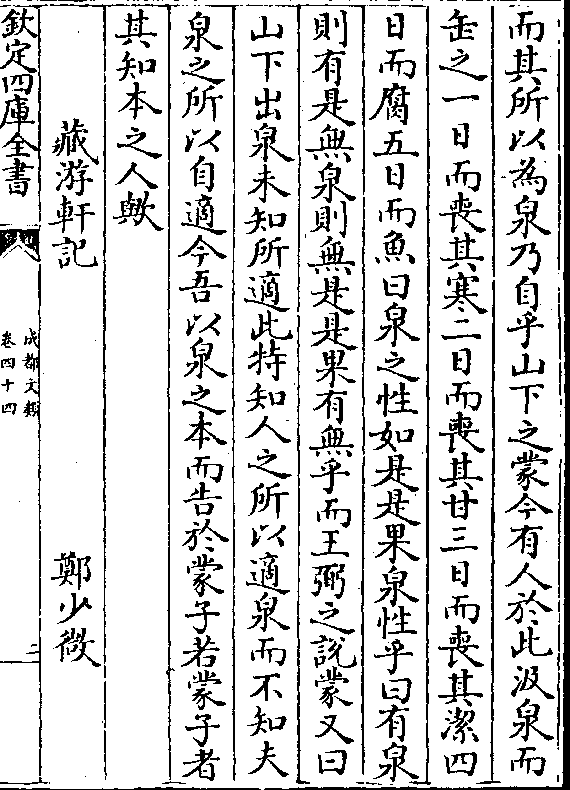 而其所以為泉乃自乎山下之蒙今有人於此汲泉而
缶之一日而喪其寒二日而喪其甘三日而喪其潔四
日而腐五日而魚曰泉之性如是是果泉性乎曰有泉
則有是無泉則無是是果有無乎而王弼之說蒙又曰
山下出泉未知所適此特知人之所以適泉而不知夫
泉之所以自適今吾以泉之本而告於蒙子若蒙子者
其知本之人歟
藏游軒記 鄭少微
欽定四庫全書
成都文類
卷四十四
二